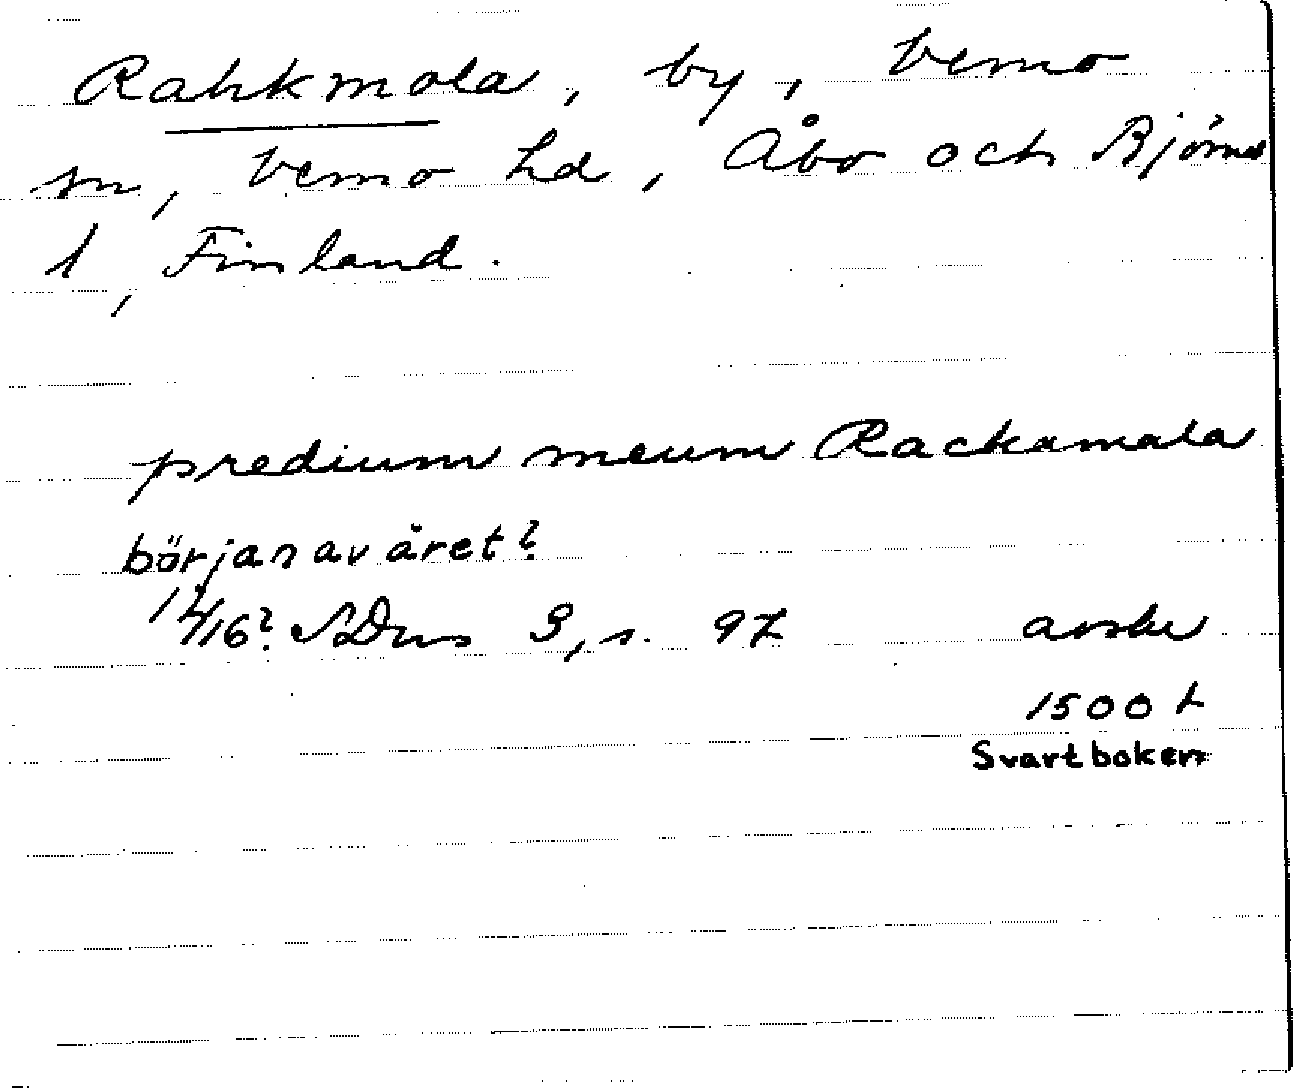 Rahkmala, by, Vemo
sn, Vemo hd, Åbo och Björneb
l, Finland.
predium meum Rackamala
början av året?
1416? SDns 3, s. 97 avskr
1500 t
Svartboken